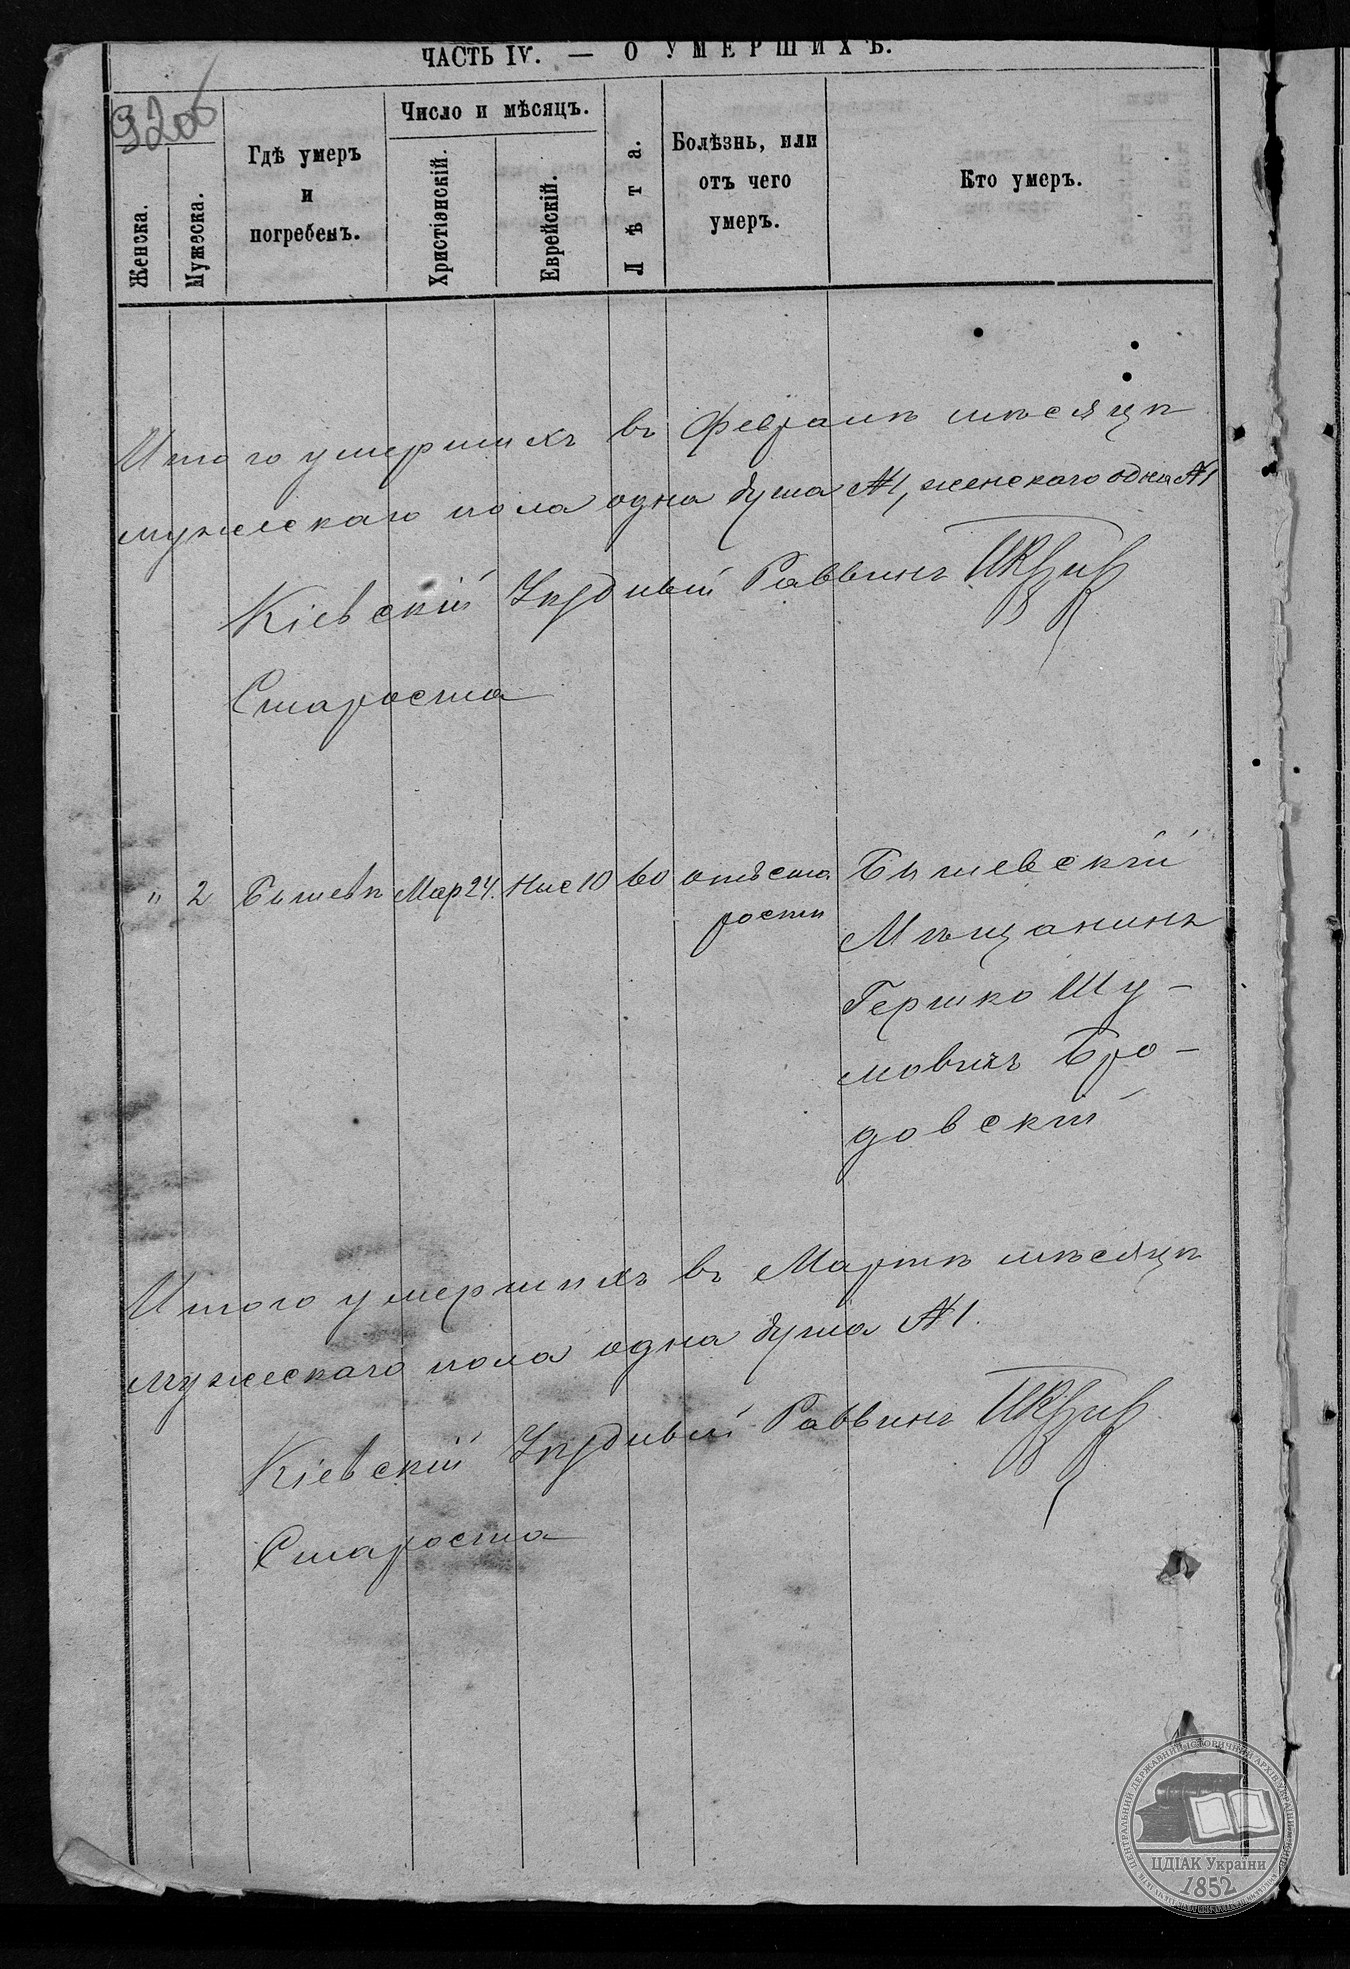 ЧАСТЬ IV. — О УМЕРШИХЪ.
Женска.
Мужеска.
Гдѣ умеръ
и
погребенъ.
Число и мѣсяцъ.
Христіанскій.
Еврейскій.
Лѣта.
Болѣзнь, или
отъ чего
умеръ.
Кто умеръ.
Итого умершихъ въ Февралѣ мѣсяцѣ
мужескаго пола одна душа №1, женскаго одна №1
Кіевскій Уѣздный Раввинъ
Староста
" 2 Бышевѣ Мар 24. Нис 10 60 отъ ста Бышевскій
рости Мѣщанинъ
Гершко Шу-
мовичъ Бро-
довскій
Итого умершихъ въ Мартѣ мѣсяцѣ
мужескаго пола одна душа №1.
Кіевскій Уѣздный Раввинъ
Староста
ЦДІАК України
1852